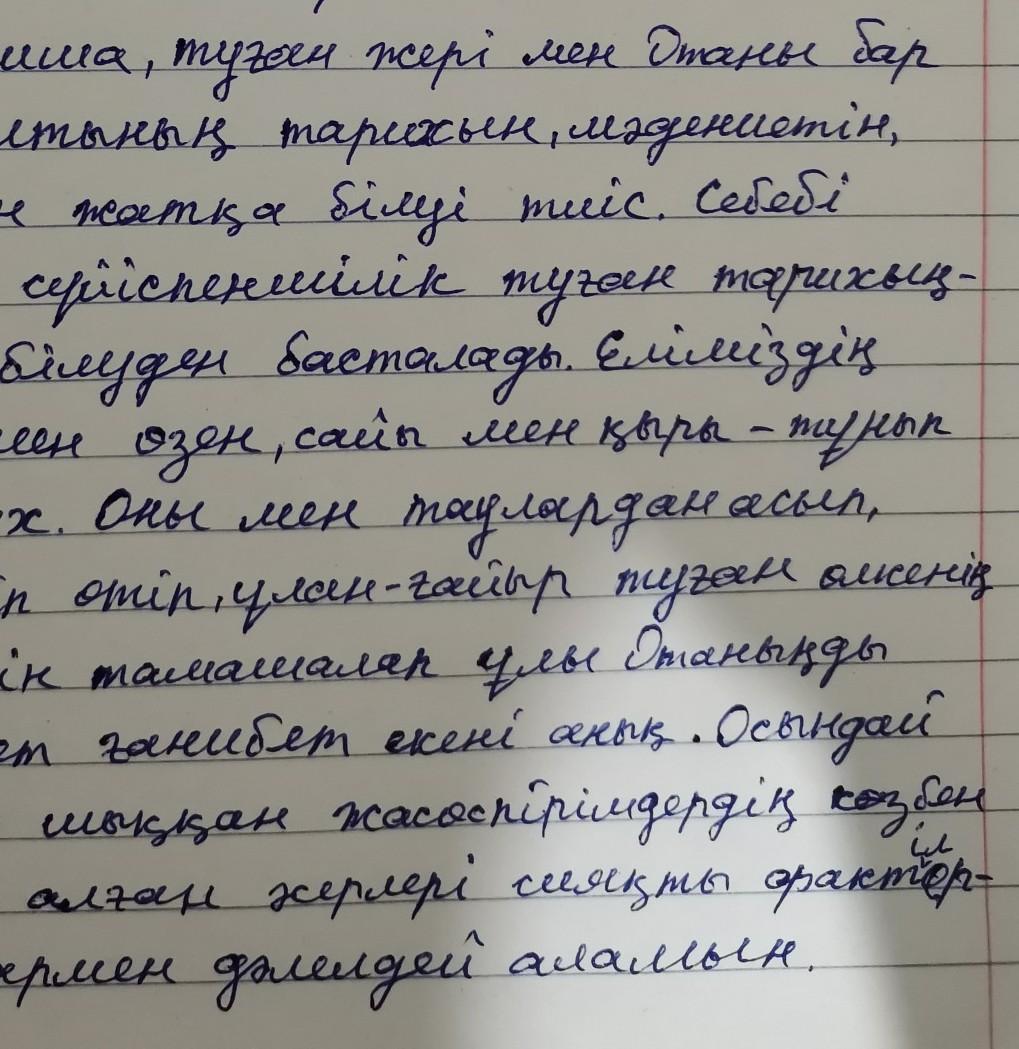 туған жері мен Отаны бар
тарихын, мәдениетін,
жатқа білуі тиіс. Себебі
сүйіспеншілік туған тарихың-
білуден басталады. Еліміздің
мен өзен, сайы мен қыры – тұнып
х. Оны мен таулардан асып,
п өтіп, ұлан-ғайыр туған өлкенің
ін тамашалап ұлы Отаныңды
ет ғанибет екені анық. Осындай
шыққан жасөспірімдердің көзбен
алған жерлері сияқты фактіл
ермен дәлелдей аламын.